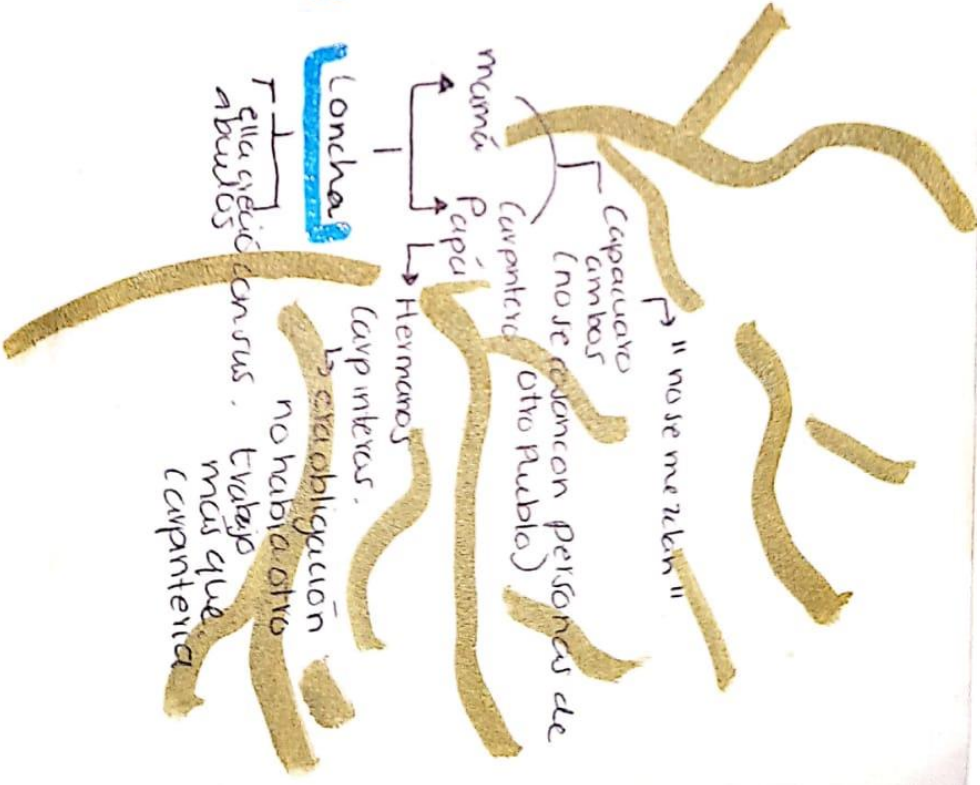 "no se mezclan"
Capacuaro
ambos
(no se casan con personas de
otro Pueblo)
mamá
Papá
Carpintero
Hermanos
Carpinteros.
era obligación
no había otro
trabajo
más que
carpintería
Concha
ella creció con sus
abuelos